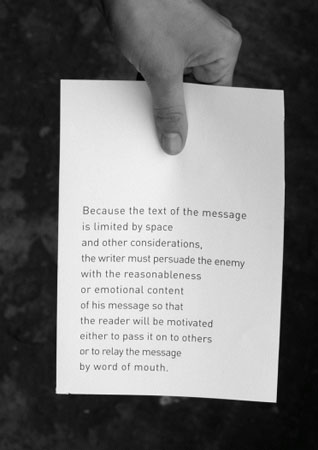 Because the text of the message
is limited by space
and other considerations,
the writer must persuade the enemy
with the reasonableness
or emotional content
of his message so that
the reader will be motivated
either to pass it on to others
or to relay the message
by word of mouth.